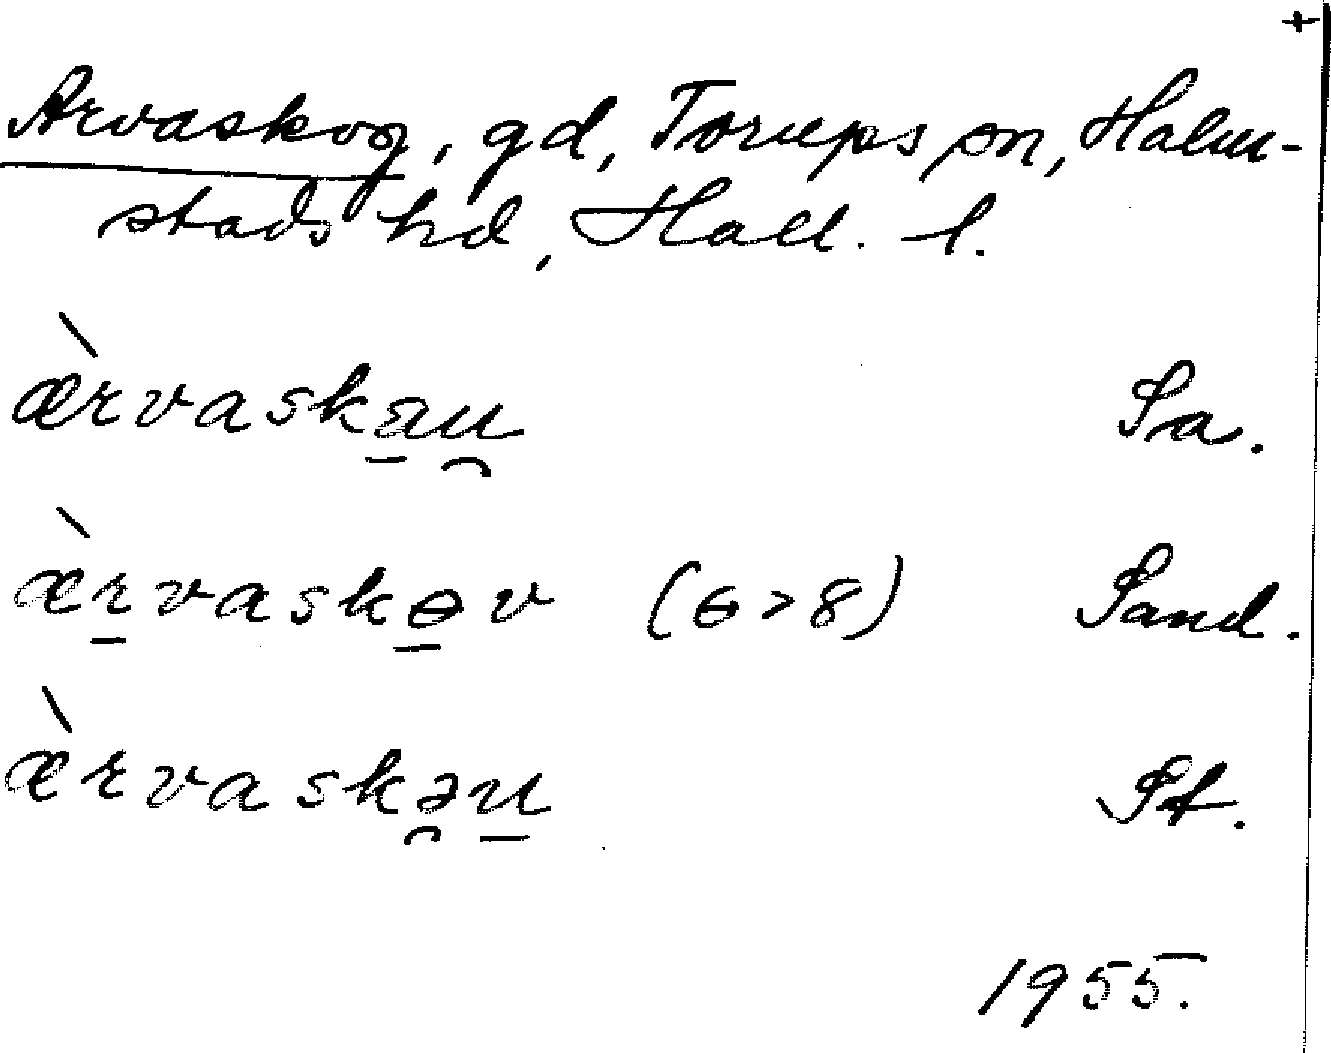 +
Arvaskog, gd, Torups sn, Halm-
stads hd, Hall. l.
æ̀rvaska̱u̯ Sa.
æ̀ṟvaskɵ̱v (ɞ>8) Sand.
æ̀rvaskə̯u̱ St.
1955.